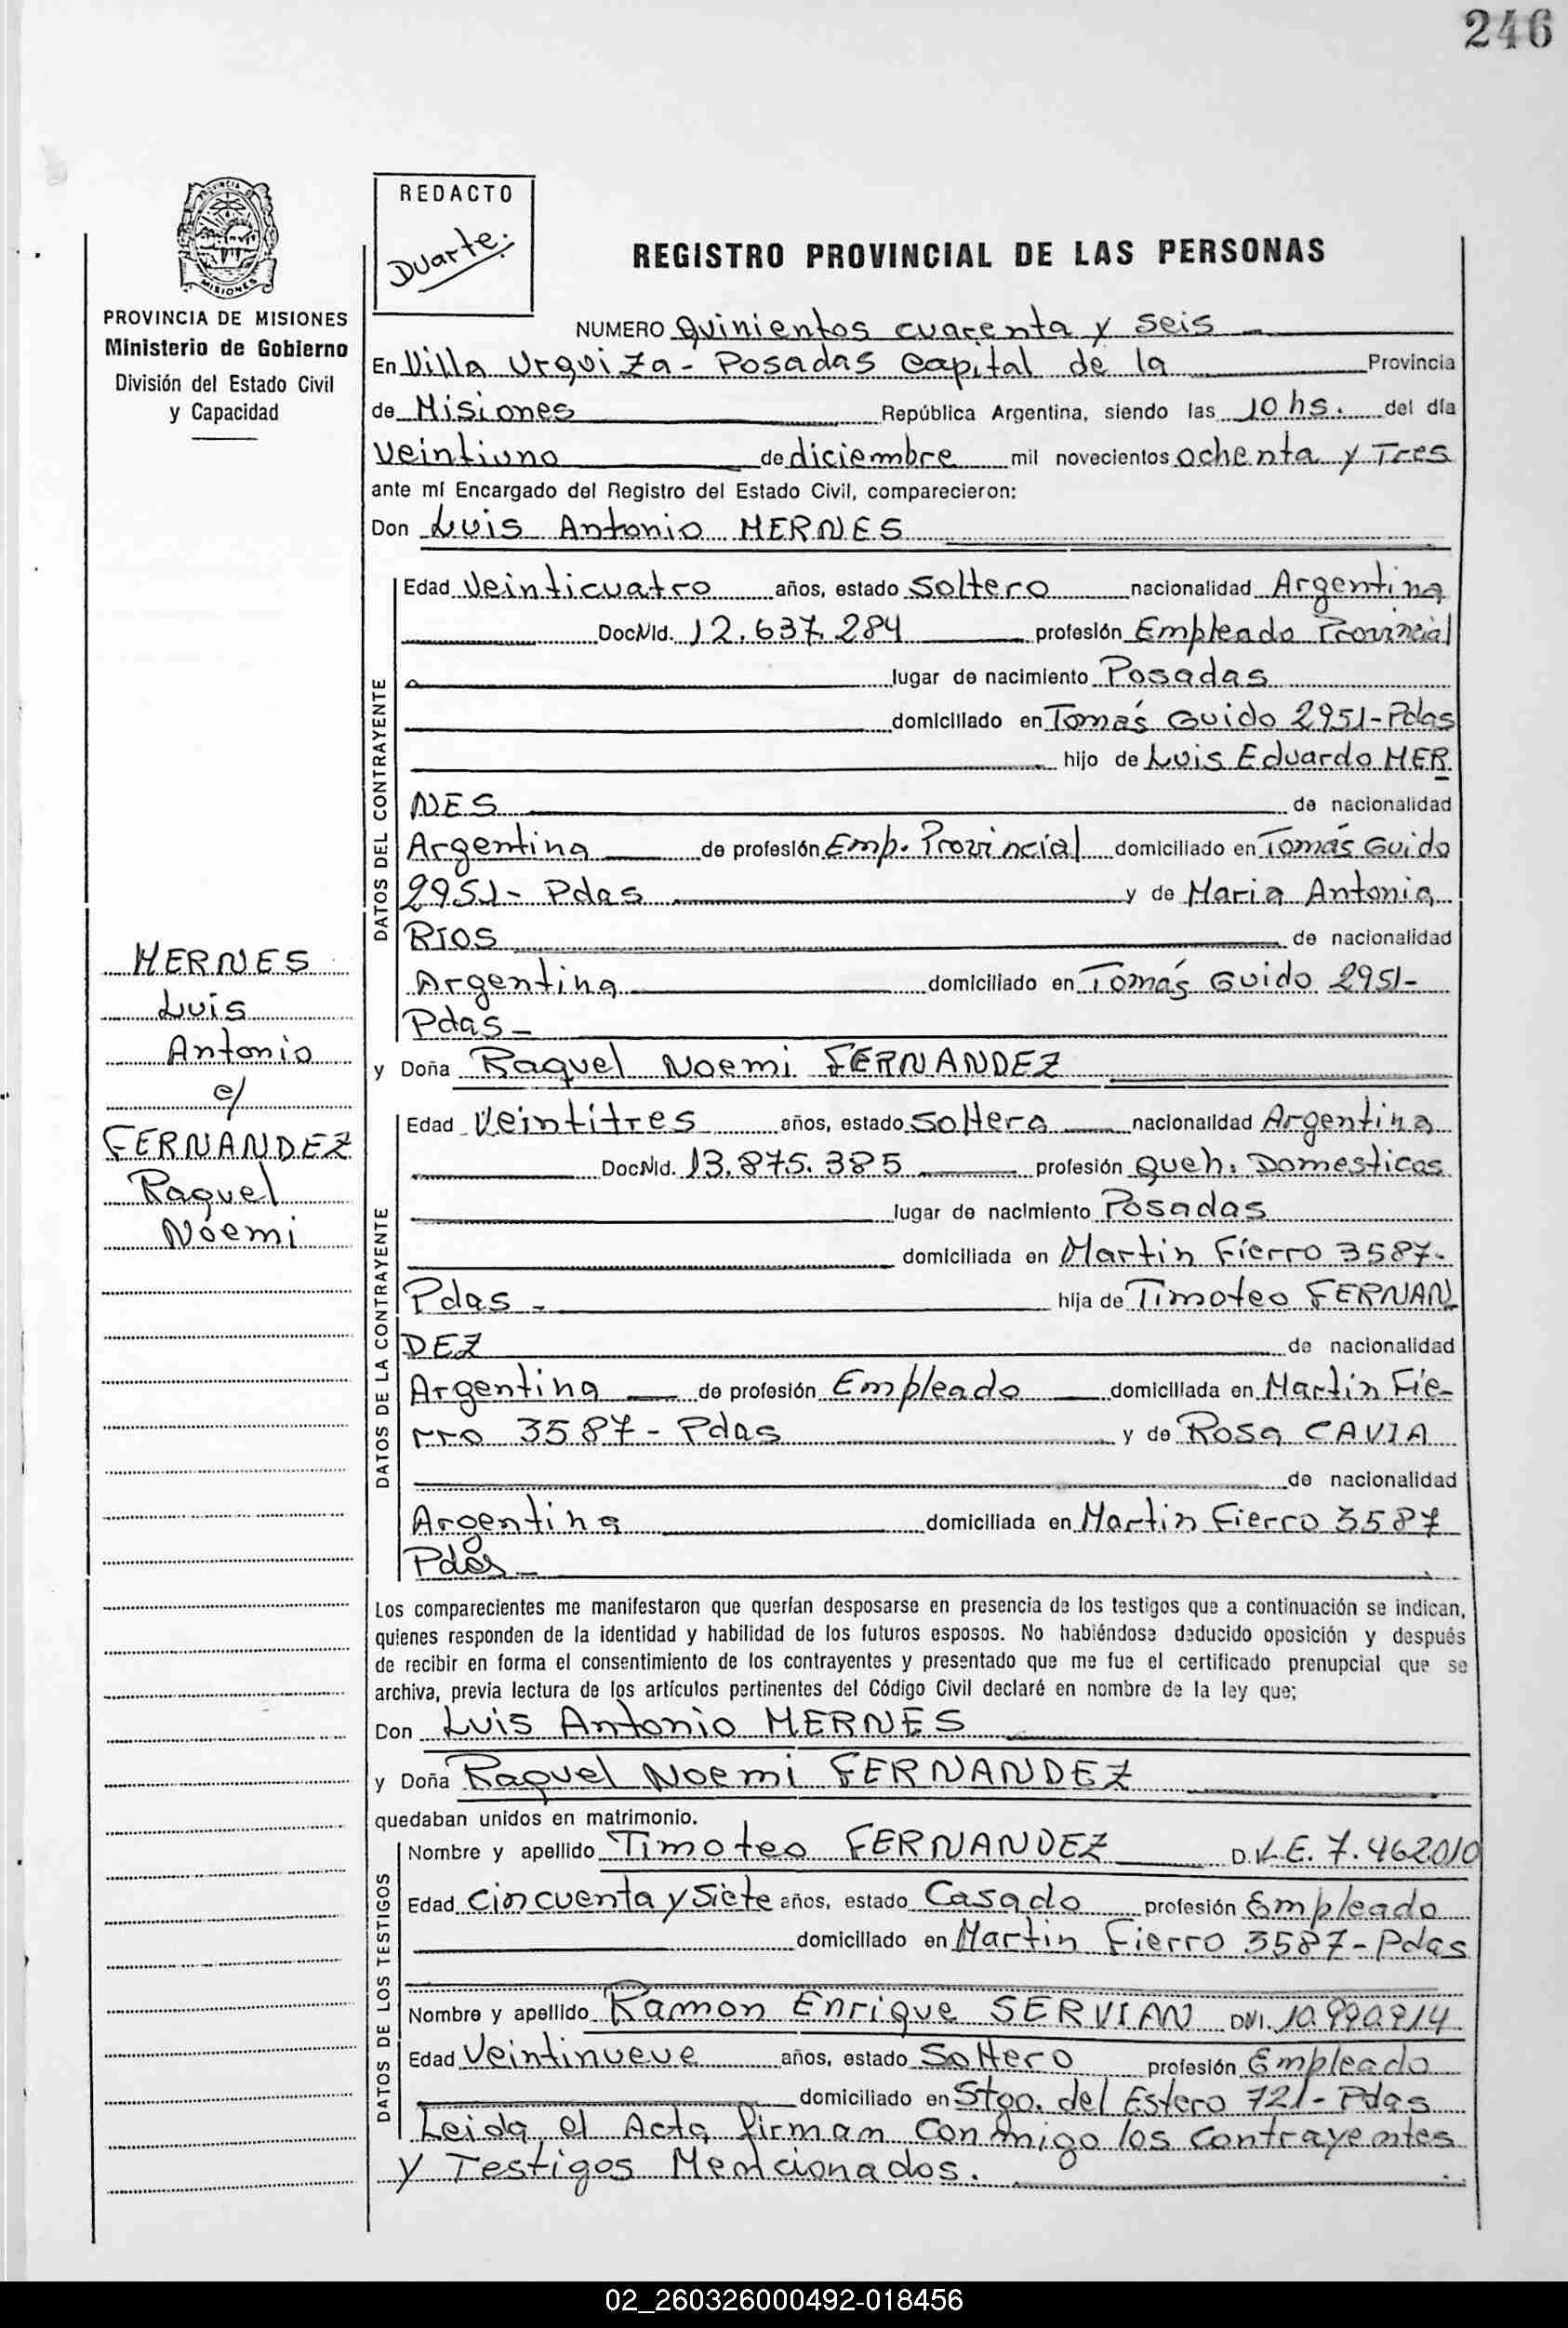 246
REDACTO
Duarte.
MISIONES
PROVINCIA DE MISIONES
Ministerio de Gobierno
División del Estado Civil
y Capacidad
REGISTRO PROVINCIAL DE LAS PERSONAS
NUMERO Quinientos cuarenta y seis
En Villa Urquiza - Posadas Capital de la Provincia
de Misiones República Argentina, siendo las 10 hs. del día
Veintiuno de diciembre mil novecientos ochenta y Tres
ante mí Encargado del Registro del Estado Civil, comparecieron:
Don Luis Antonio HERNES
DATOS DEL CONTRAYENTE
Edad Veinticuatro años, estado Soltero nacionalidad Argentina
Doc Nid. 12.637.284 profesión Empleado Provincial
lugar de nacimiento Posadas
domiciliado en Tomás Guido 2951-Pdas
hijo de Luis Eduardo HER
NES de nacionalidad
Argentina de profesión Emp. Provincial domiciliado en Tomás Guido
2951- Pdas y de Maria Antonia
RIOS de nacionalidad
Argentina domiciliado en Tomás Guido 2951-
Pdas-
HERNES
Luis
Antonio
c/
FERNANDEZ
Raquel
Noemi
y Doña Raquel Noemi FERNANDEZ
DATOS DE LA CONTRAYENTE
Edad Veintitres años, estado Soltera nacionalidad Argentina
Doc Nid. 13.875.385 profesión Queh. Domesticos
lugar de nacimiento Posadas
domiciliada en Martin Fierro 3587-
Pdas - hija de Timoteo FERNAN
DEZ de nacionalidad
Argentina de profesión Empleado domiciliada en Martin Fie-
rro 3587 - Pdas y de Rosa CAVIA
de nacionalidad
Argentina domiciliada en Martin Fierro 3587
Pdas-
Los comparecientes me manifestaron que querían desposarse en presencia de los testigos que a continuación se indican,
quienes responden de la identidad y habilidad de los futuros esposos. No habiéndose deducido oposición y después
de recibir en forma el consentimiento de los contrayentes y presentado que me fue el certificado prenupcial que se
archiva, previa lectura de los artículos pertinentes del Código Civil declaré en nombre de la ley que;
Don Luis Antonio HERNES
y Doña Raquel Noemi FERNANDEZ
quedaban unidos en matrimonio.
DATOS DE LOS TESTIGOS
Nombre y apellido Timoteo FERNANDEZ D. L.E. 7.462010
Edad Cincuenta y Siete años, estado Casado profesión Empleado
domiciliado en Martin Fierro 3587-Pdas
Nombre y apellido Ramon Enrique SERVIAN DNI.
Edad Veintinueve años, estado Soltero profesión Empleado
domiciliado en Stgo. del Estero 721- Pdas
Leida el Acta firman Conmigo los Contrayentes
y Testigos Mencionados.
02_260326000492-018456